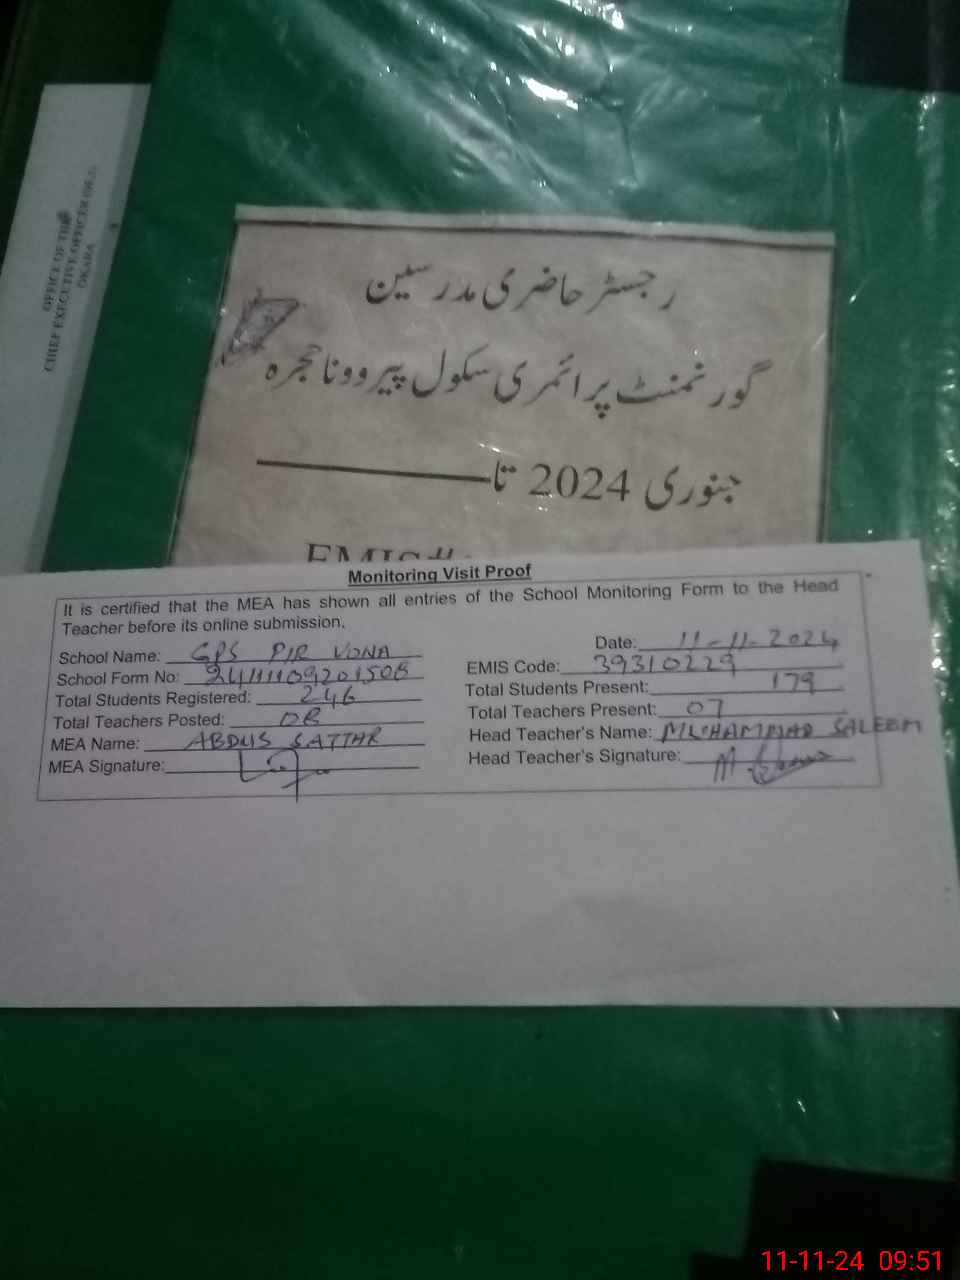 OFFICE OF THE
CHIEF EXECUTIVE OFFICER (DEA)
OKARA
رجسٹر حاضری مدرسین
گورنمنٹ پرائمری سکول پیروونا حجرہ
جنوری 2024 تا
EMIS#:
Monitoring Visit Proof
It is certified that the MEA has shown all entries of the School Monitoring Form to the Head
Teacher before its online submission.
Date: 11-11-2024
School Name: GPS PIR VONA
EMIS Code: 39310229
School Form No:
Total Students Present: 179
Total Students Registered: 246
Total Teachers Present: 07
Total Teachers Posted: 08
Head Teacher's Name: MUHAMMAD SALEEM
MEA Name: ABDUS SATTAR
Head Teacher's Signature:
MEA Signature:
11-11-24 09:51